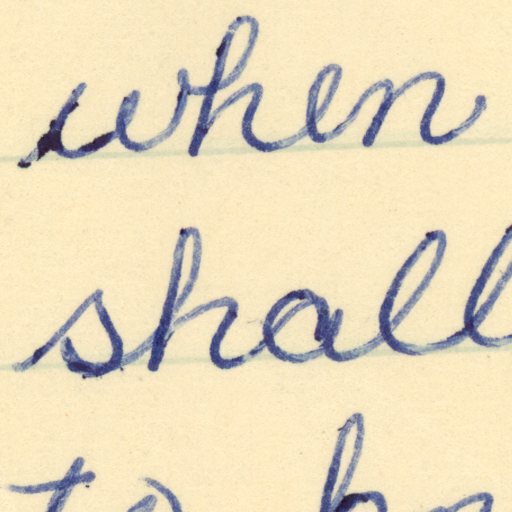 when
shall
to